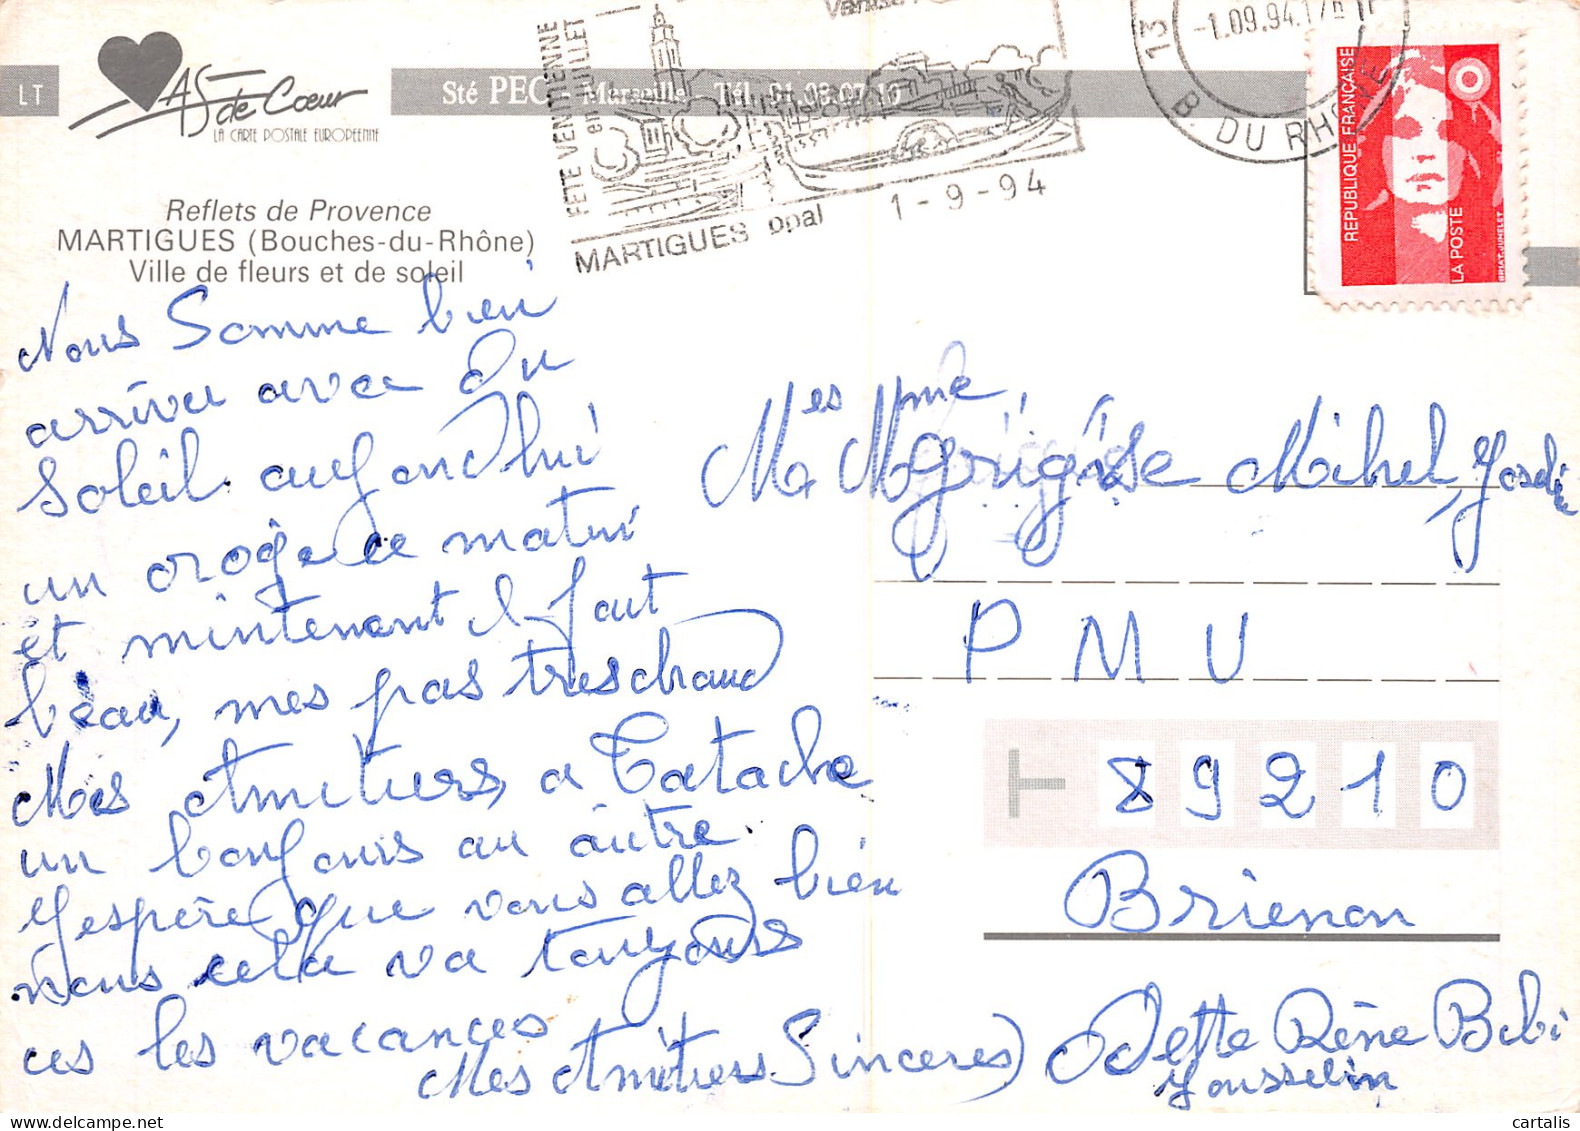 LT
AS de Cœur
LA CARTE POSTALE EUROPEENNE
Sté PEC - Marseille - Tél. 91.08.07.10
FETE VENITIENNE
en JUILLET
MARTIGUES ppal 1-9-94
13
-1.09.94.17h
B. DU RHONE
REPUBLIQUE FRANÇAISE
LA POSTE
BRIAT-JUMELET
Reflets de Provence
MARTIGUES (Bouches-du-Rhône)
Ville de fleurs et de soleil
Nous Somme bien
arriver avec du
Soleil. aujourd'hui
un oroge ce matin
et mintenant il fait
beau, mes pas tres chaud
Mes Amitiers, a Tatache
un bonjouis au autre.
J'espère que vous allez bien
nous cela va toujours
ces les vacances
Mes Amitiers Sinceres)
Odette Rène Bebi
Yousselin
Mes Mme,
Mihel,
P M U
89210
Brienon
cartalis